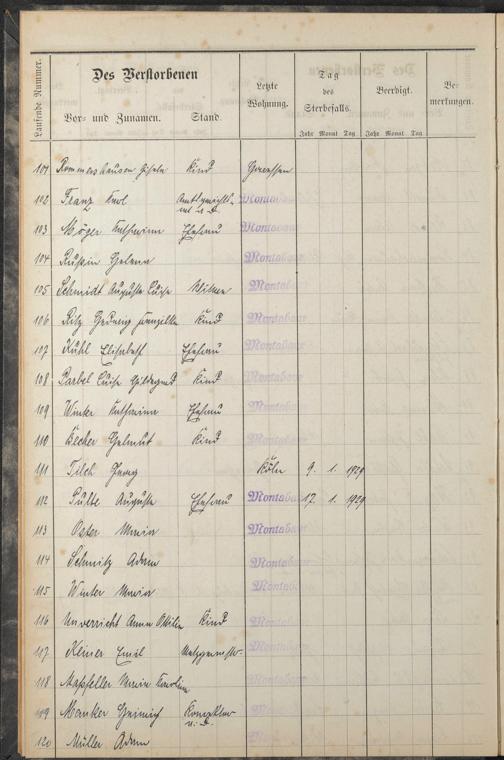 Des Verstorbenen
Laufende Nummer.
Vor- und Zunamen.
Stand.
Letzte Wohnung.
Tag des Sterbefalls.
Jahr Monat Tag
Beerdigt.
Jahr Monat Tag
Bemerkungen.
101 Rommershausen Gisela Kind
102 Franz Karl Amtsgerichts- Montabaur
103 Katharina Ehefrau Montabaur
104 Helena Montabaur
105 Schmidt Auguste Luise Witwe Montabaur
106 Hedwig Kind Montabaur
107 Kühl Elisabeth Ehefrau Montabaur
108 Luise Hildegard Kind Montabaur
109 Winter Katharina Ehefrau Montabaur
110 Becher Helmut Kind Montabaur
111 Tilch Georg Köln 9. 1. 1929
112 Pulte Auguste Ehefrau Montabaur 12. 1. 1929
113 Oster Maria Montabaur
114 Schmitz Adam Montabaur
115 Winter Maria Montabaur
116 Unverricht Anna Ottilie Kind Montabaur
117 Keiner Emil Metzgermstr. Montabaur
118 Maria Karolina Montabaur
119 Manker Heinrich Montabaur
120 Müller Adam